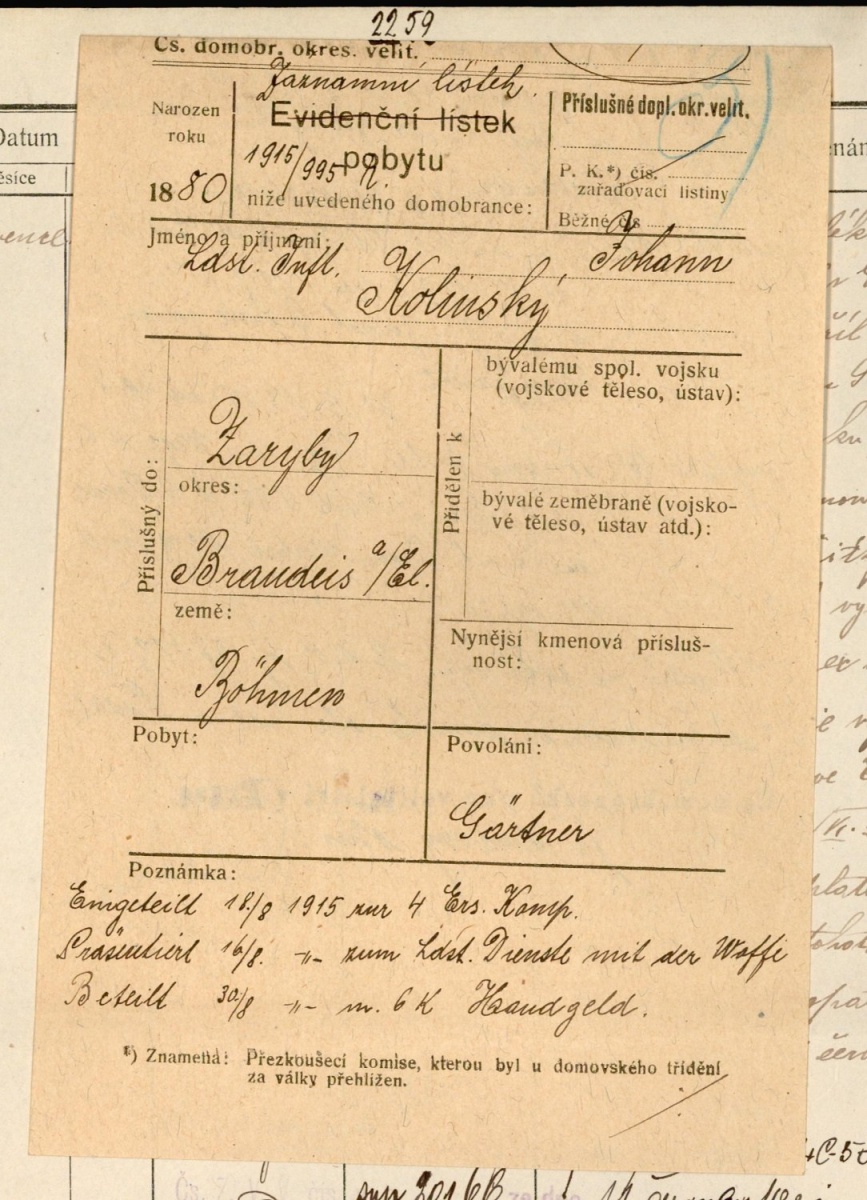 2259
Čs. domobr. okres. velit.
Záznamní lístek.
Narozen
roku
1880
Evidenční lístek
1915/995 pobytu
níže uvedeného domobrance:
Příslušné dopl. okr. velit.
P. K.*) čís.
zařaďovací listiny
Běžné čís
Jméno a příjmení:
Ldst. Inft. Johann
Kolinský
Příslušný do:
Zaryby
okres:
Brandeis a/El.
země:
Böhmen
Přidělen k
bývalému spol. vojsku
(vojskové těleso, ústav):
bývalé zeměbraně (vojsko-
vé těleso, ústav atd.):
Nynější kmenová přísluš-
nost:
Pobyt:
Povolání:
Gärtner
Poznámka:
Eingeteilt 18./8 1915 zur 4 Ers. Komp.
Präsentiert 16/8. -"- zum Ldst. Dienste mit der Waffe
Beteilt 30./8 -"- m. 6 K Handgeld.
*) Znamená: Přezkoušecí komise, kterou byl u domovského třídění
za války přehlížen.
Datum
ěsíce